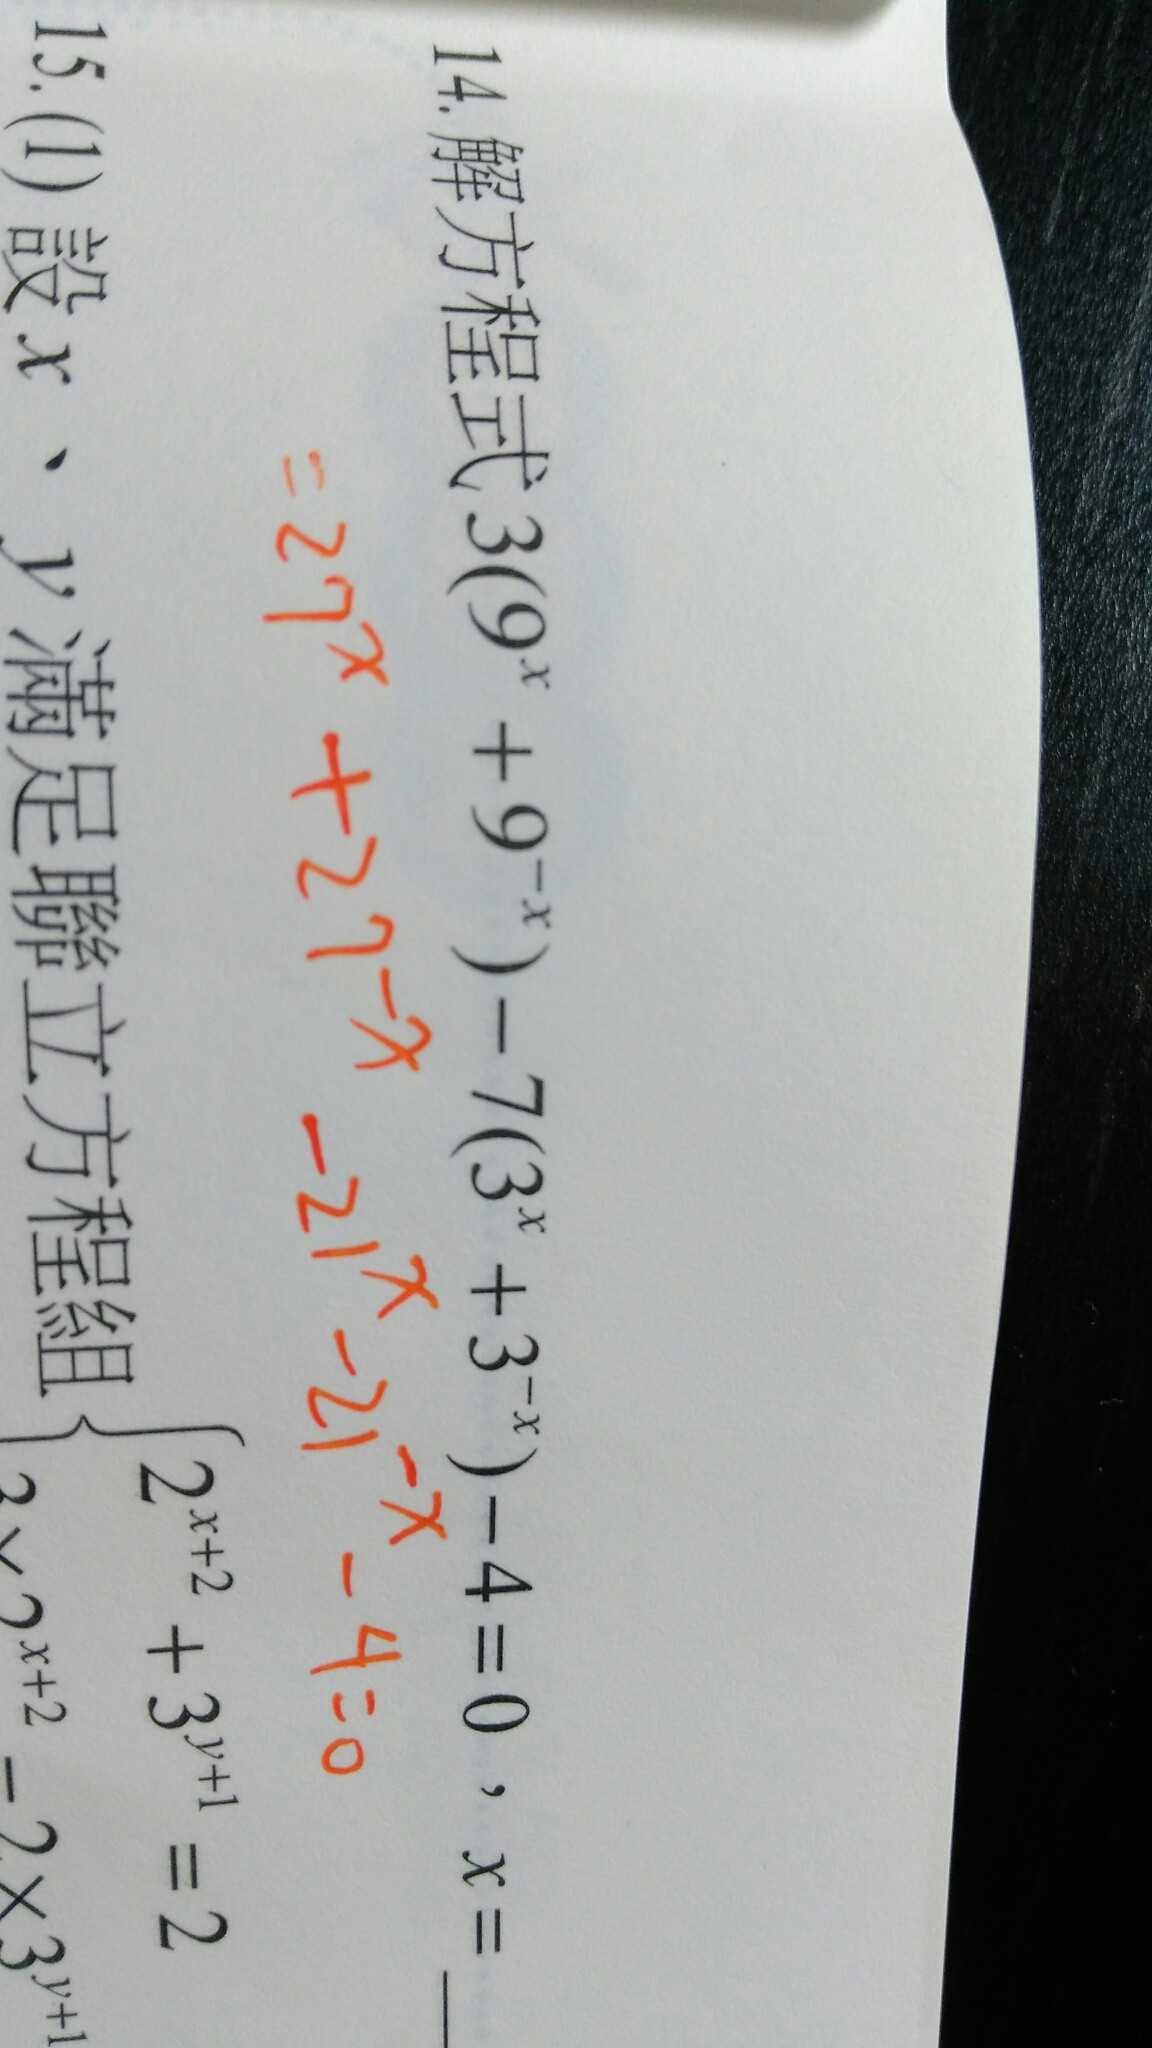 14. 解方程式 3(9ˣ + 9⁻ˣ) − 7(3ˣ + 3⁻ˣ) − 4 = 0 , x = __
= 27ˣ + 27⁻ˣ − 21ˣ − 21⁻ˣ − 4 = 0
15. (1) 設 x 、 y 滿足聯立方程組 { 2ˣ⁺² + 3ʸ⁺¹ = 2
3 × 2ˣ⁺² − 2 × 3ʸ⁺¹